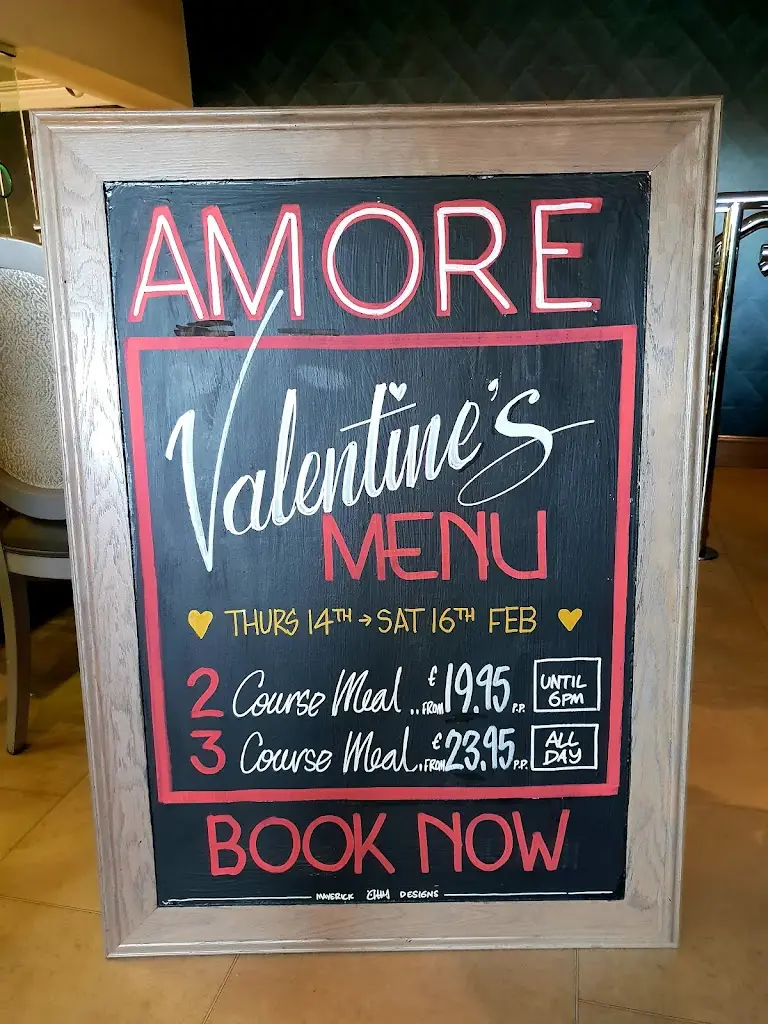 AMORE
Valentine's
MENU
THURS 14TH → SAT 16TH FEB
2 Course Meal .. FROM €19.95 P.P. UNTIL 6PM
3 Course Meal . FROM €23.95 P.P. ALL DAY
BOOK NOW
MAVERICK DESIGNS